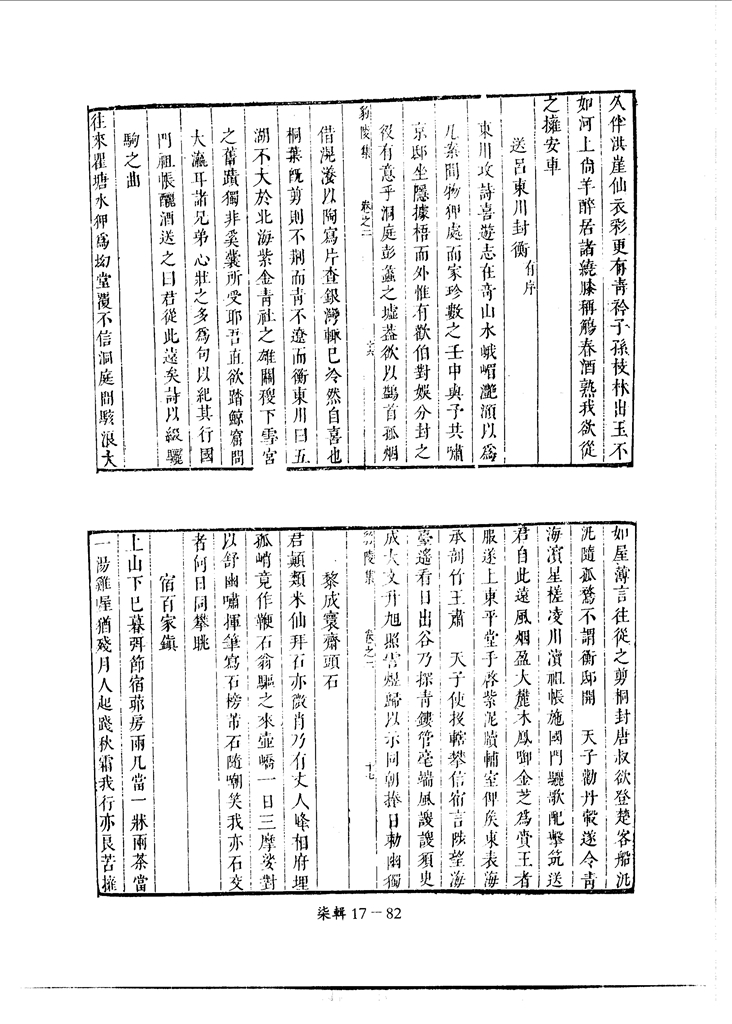 久伴洪崖仙衣彩更有青衿子孫枝林出玉不
如河上尙羊醉居諸繞膝稱觴春酒熟我欲從
之擁安車
送呂東川封衡有序
東川攻詩喜遊志在奇山水峨嵋灔澦以爲
几案間物狎處而家珍數之壬申與予共嘯
京邸坐隱據梧而外惟有歡伯對娛分封之
役有意乎洞庭彭蠡之墟葢欲以鷁首孤烟
借滉瀁以陶寫片查銀灣輙已泠然自喜也
桐葉旣剪則不荆而靑不遼而衡東川曰五
湖不大於北海紫金靑社之雄關稷下雪宮
之舊蹟獨非奚囊所受耶吾直欲踏鯨窟問
大瀛耳諸兄弟心壯之多爲句以紀其行國
門祖帳釃酒送之曰君從此遠矣詩以綴驪
駒之曲
往來瞿塘水狎爲坳堂覆不信洞庭間駭浪大
如屋薄言往從之剪桐封唐叔欲登楚客船汎
汎隨孤鶩不謂衡邸開　天子勅丹轂遂令靑
海濱星槎凌川瀆祖帳施國門驪歌配擊筑送
君自此遠風烟盈大麓木鳳啣金芝爲賞王者
服遂上東平堂手啓紫泥牘輔室俾矦東表海
承剖竹王肅　天子使投轄攀信宿言陟望海
臺遙看日出谷乃探靑鏤管毫端風謖謖須臾
成大文升旭照雲煜歸以示同朝捧日勅幽獨
黎成寰齋頭石
君顚類米仙拜石亦微肖乃有丈人峰相府埋
孤峭竟作鞭石翁驅之來壺嶠一日三摩娑對
以舒幽嘯揮筆寫石榜芾石隨嘲笑我亦石交
者何日同攀眺
宿百家鎭
上山下已暮弭節宿茆房兩几當一牀兩茶當
一湯雞星猶殘月人起踐秋霜我行亦良苦擁
柒輯 17－82